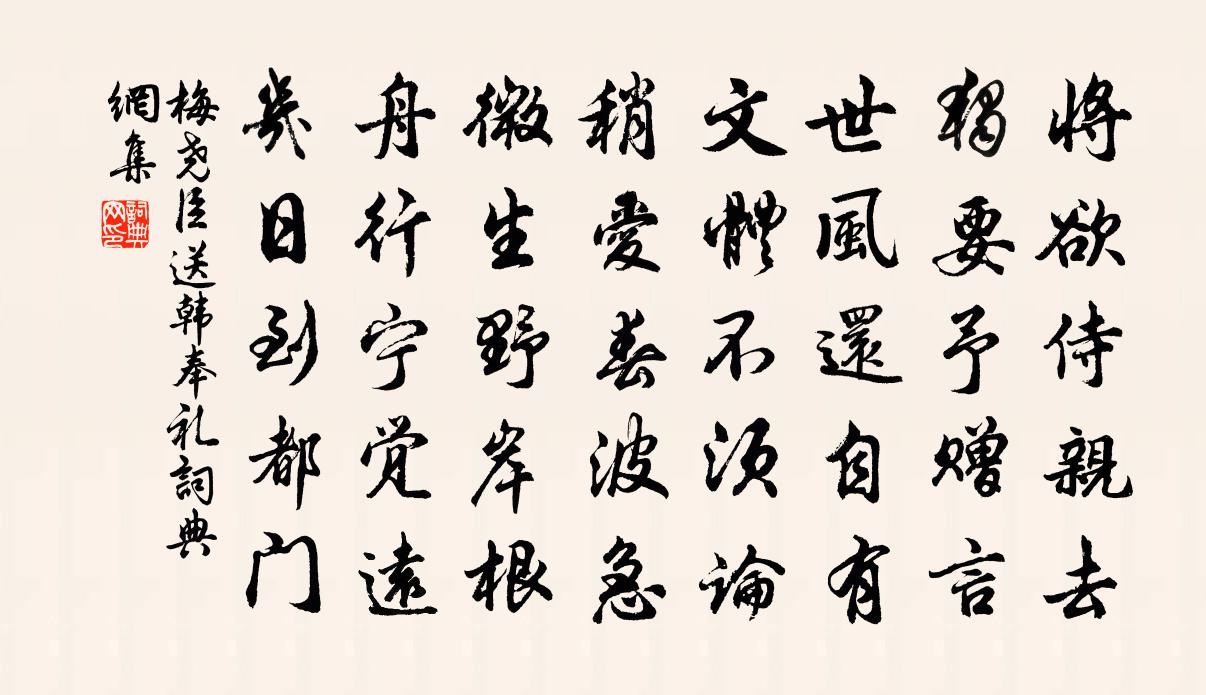 將欲侍親去
獨要予贈言
世風還自有
文體不須論
稍愛春波急
微生野岸根
舟行宁覺遠
幾日到都门
梅尧臣送韩奉礼詞典
網集
詞典
网印